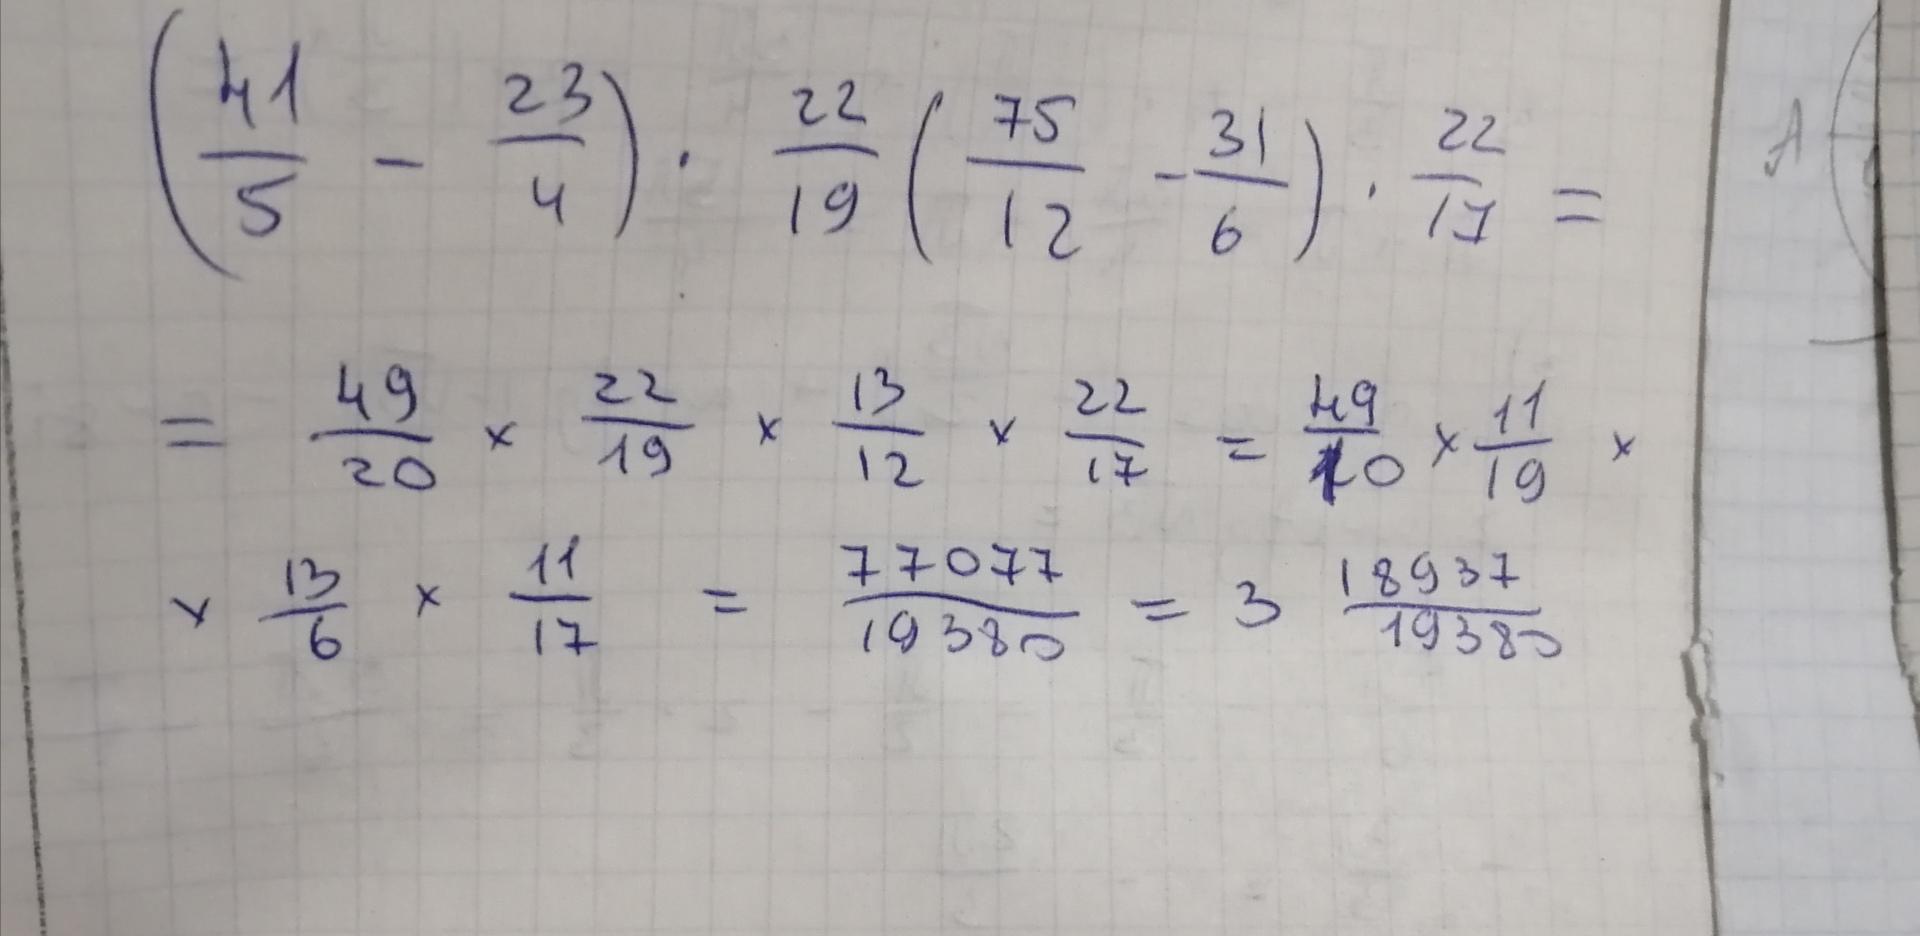 (41/5 - 23/4) · 22/19 (75/12 - 31/6) · 22/17 =
= 49/20 × 22/19 × 13/12 × 22/17 = 49/10 × 11/19 ×
× 13/6 × 11/17 = 77077/19380 = 3 18937/19380
A